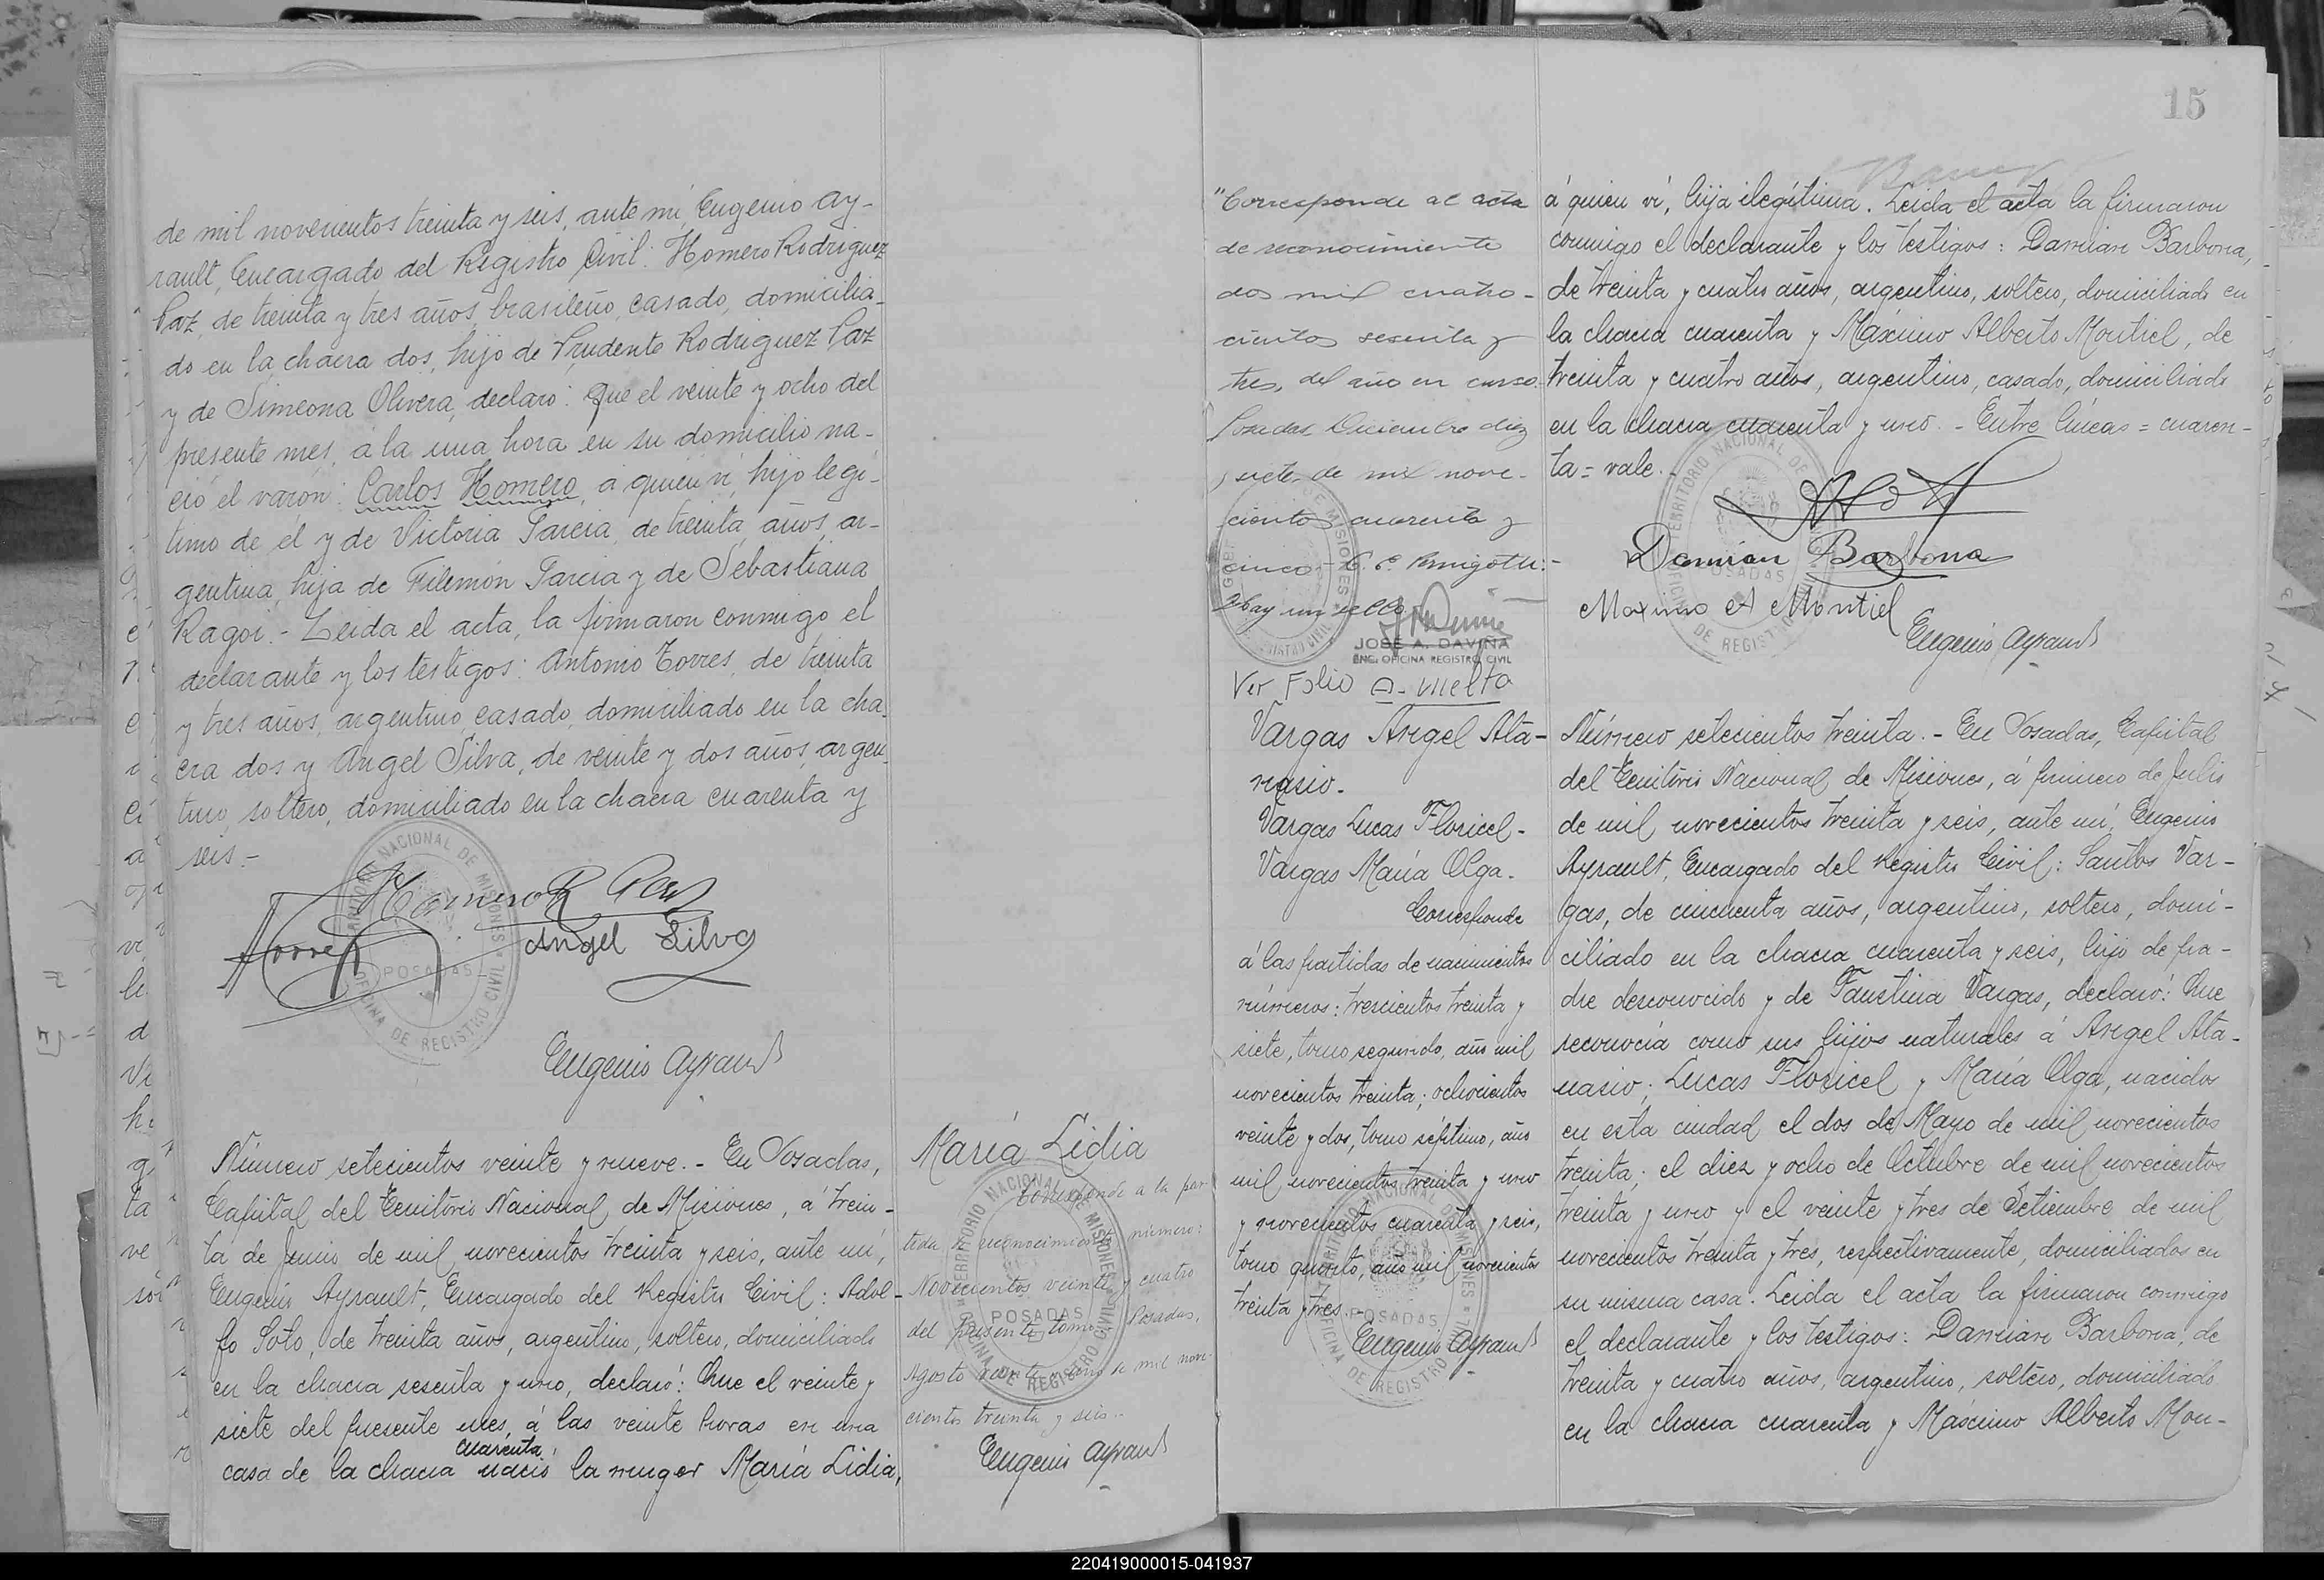 de mil novecientos treinta y seis, ante mí, Eugenio Ay-
rault, Encargado del Registro Civil: Homero Rodriguez
Paz, de treinta y tres años, brasileño, casado, domicilia-
do en la chacra dos, hijo de Prudente Rodriguez Paz
y de Simeona Olivera, declaró: Que el veinte y ocho del
presente mes, á la una hora en su domicilio na-
ció el varón: Carlos Homero, á quien ví, hijo legí-
timo de él y de Victoria Garcia, de treinta años, ar-
gentina, hija de Filemón Garcia y de Sebastiana
Ragoi.- Leida el acta, la firmaron conmigo el
declarante y los testigos: Antonio Torres, de treinta
y tres años, argentino, casado, domiciliado en la cha-
cra dos y Angel Silva, de veinte y dos años, argen-
tino, soltero, domiciliado en la chacra cuarenta y
seis.-
Homero R Paz
Angel Silva
Eugenio Ayrault
TERRITORIO NACIONAL DE MISIONES
POSADAS
OFICINA DE REGISTRO CIVIL
Número setecientos veinte y nueve.- En Posadas,
Capital del Territorio Nacional de Misiones, á trein-
ta de Junio de mil novecientos treinta y seis, ante mí,
Eugenio Ayrault, Encargado del Registro Civil: Adol-
fo Soto, de treinta años, argentino, soltero, domiciliado
en la chacra sesenta y uno, declaró: Que el veinte y
siete del presente mes, á las veinte horas en una
cuarenta
casa de la chacra nació la mujer María Lidia,
María Lidia
Corresponde a la par
tida reconocimiento número:
Novecientos veinte y cuatro
del presente tomo. Posadas,
Agosto de mil nove-
cientos treinta y seis.-
Eugenio Ayrault
TERRITORIO NACIONAL DE MISIONES
POSADAS
OFICINA DE REGISTRO CIVIL
15
"Corresponde al acta
de reconocimiento
dos mil cuatro-
cientos sesenta y
tres, del año en curso.
Posadas Diciembre diez
y siete de mil nove-
cientos cuarenta y
cinco-
Hay un sello
JOSÉ A. DAVIÑA
ENC. OFICINA REGISTRO CIVIL
Ver Folio a- vuelta
á quien ví, hija ilegítima. Leida el acta la firmaron
conmigo el declarante y los testigos: Damian Barbona,
de treinta y cuatro años, argentino, soltero, domiciliado en
la chacra cuarenta y Máximo Alberto Montiel, de
treinta y cuatro años, argentino, casado, domiciliado
en la chacra cuarenta y uno.- Entre líneas = cuaren-
ta = vale.
Damian Barbona
Maximo A Montiel
Eugenio Ayrault
TERRITORIO NACIONAL DE
POSADAS
DE REGISTRO
Vargas Angel Ata-
nasio.
Vargas Lucas Floricel-
Vargas María Olga.
Corresponde
á las partidas de nacimientos
números: trescientos treinta y
siete, tomo segundo, año mil
novecientos treinta; ochocientos
veinte y dos, tomo séptimo, año
mil novecientos treinta y uno
y novecientos cuarenta y seis,
tomo quinto, año mil novecientos
treinta y tres.-
Eugenio Ayrault
NACIONAL DE MISIONES
POSADAS
OFICINA DE REGISTRO CIVIL
Número setecientos treinta.- En Posadas, Capital
del Territorio Nacional de Misiones, á primero de Julio
de mil novecientos treinta y seis, ante mí, Eugenio
Ayrault, Encargado del Registro Civil: Santos Var-
gas, de cincuenta años, argentino, soltero, domi-
ciliado en la chacra cuarenta y seis, hijo de pa-
dre desconocido y de Faustina Vargas, declaró: Que
reconocía como sus hijos naturales á Angel Ata-
nasio; Lucas Floricel y María Olga, nacidos
en esta ciudad el dos de Mayo de mil novecientos
treinta; el diez y ocho de Octubre de mil novecientos
treinta y uno y el veinte y tres de Setiembre de mil
novecientos treinta y tres, respectivamente, domiciliados en
su misma casa. Leida el acta la firmaron conmigo
el declarante y los testigos: Damian Barbona, de
treinta y cuatro años, argentino, soltero, domiciliado
en la chacra cuarenta y Máximo Alberto Mon-
220419000015-041937